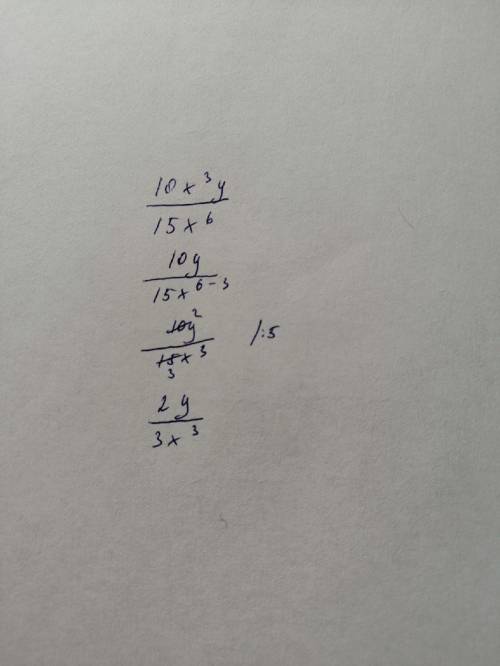 10x³y
15x⁶
10y
15x⁶⁻³
10y² /:5
15x³
3
2y
3x³